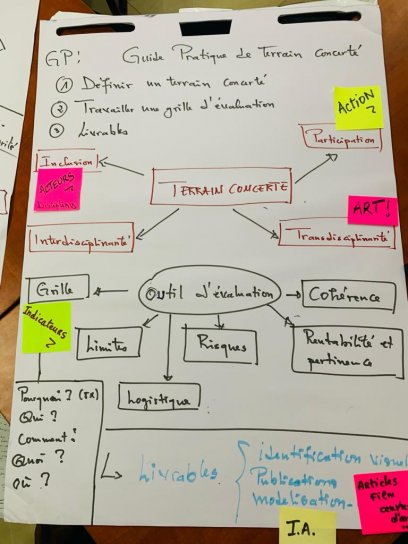 GP: Guide Pratique de Terrain concerté
① Définir un terrain concerté
② Travailler une grille d'évaluation
③ Livrables
ACTION
?
Participation
Inclusion
ACTEURS
?
TERRAIN CONCERTE
ART!
Interdisciplinarité
Transdisciplinarité
Grille
Outil d'évaluation
Cohérence
Indicateurs
?
Limites
Risques
Rentabilité et
pertinence
Logistique
Pourquoi?
Qui?
Comment?
Quoi?
où?
Livrables
identification
Publications
modélisation
Articles
Film
I.A.